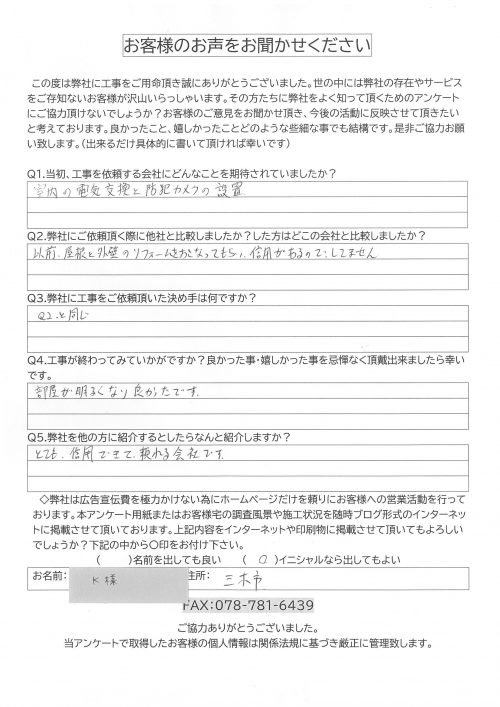 お客様のお声をお聞かせください
この度は弊社に工事をご用命頂き誠にありがとうございました。世の中には弊社の存在やサービス
をご存知ないお客様が沢山いらっしゃいます。その方たちに弊社をよく知って頂くためのアンケート
にご協力頂けないでしょうか？お客様のご意見をお聞かせ頂き、今後の活動に反映させて頂きたい
と考えております。良かったこと、嬉しかったことどのような些細な事でも結構です。是非ご協力お願
い致します。（出来るだけ具体的に書いて頂ければ幸いです）
Q1.当初、工事を依頼する会社にどんなことを期待されていましたか？
室内の電気交換と防犯カメラの設置
Q2.弊社にご依頼頂く際に他社と比較しましたか？した方はどこの会社と比較しましたか？
以前、屋根と外壁のリフォームをおこなってもらい、信用があるので、してません
Q3.弊社に工事をご依頼頂いた決め手は何ですか？
Q2.と同じ
Q4.工事が終わってみていかがですか？良かった事・嬉しかった事を忌憚なく頂戴出来ましたら幸い
です。
部屋が明るくなり良かったです。
Q5.弊社を他の方に紹介するとしたらなんと紹介しますか？
とても、信用できて、頼れる会社です。
◇弊社は広告宣伝費を極力かけない為にホームページだけを頼りにお客様への営業活動を行って
おります。本アンケート用紙またはお客様宅の調査風景や施工状況を随時ブログ形式のインターネッ
トに掲載させて頂いております。上記内容をインターネットや印刷物に掲載させて頂いてもよろしい
でしょうか？下記の中から〇印をお付け下さい。
（　　）名前を出しても良い　（　〇　）イニシャルなら出してもよい
お名前：　K様　住所：　三木市
FAX:078-781-6439
ご協力ありがとうございました。
当アンケートで取得したお客様の個人情報は関係法規に基づき厳正に管理致します。